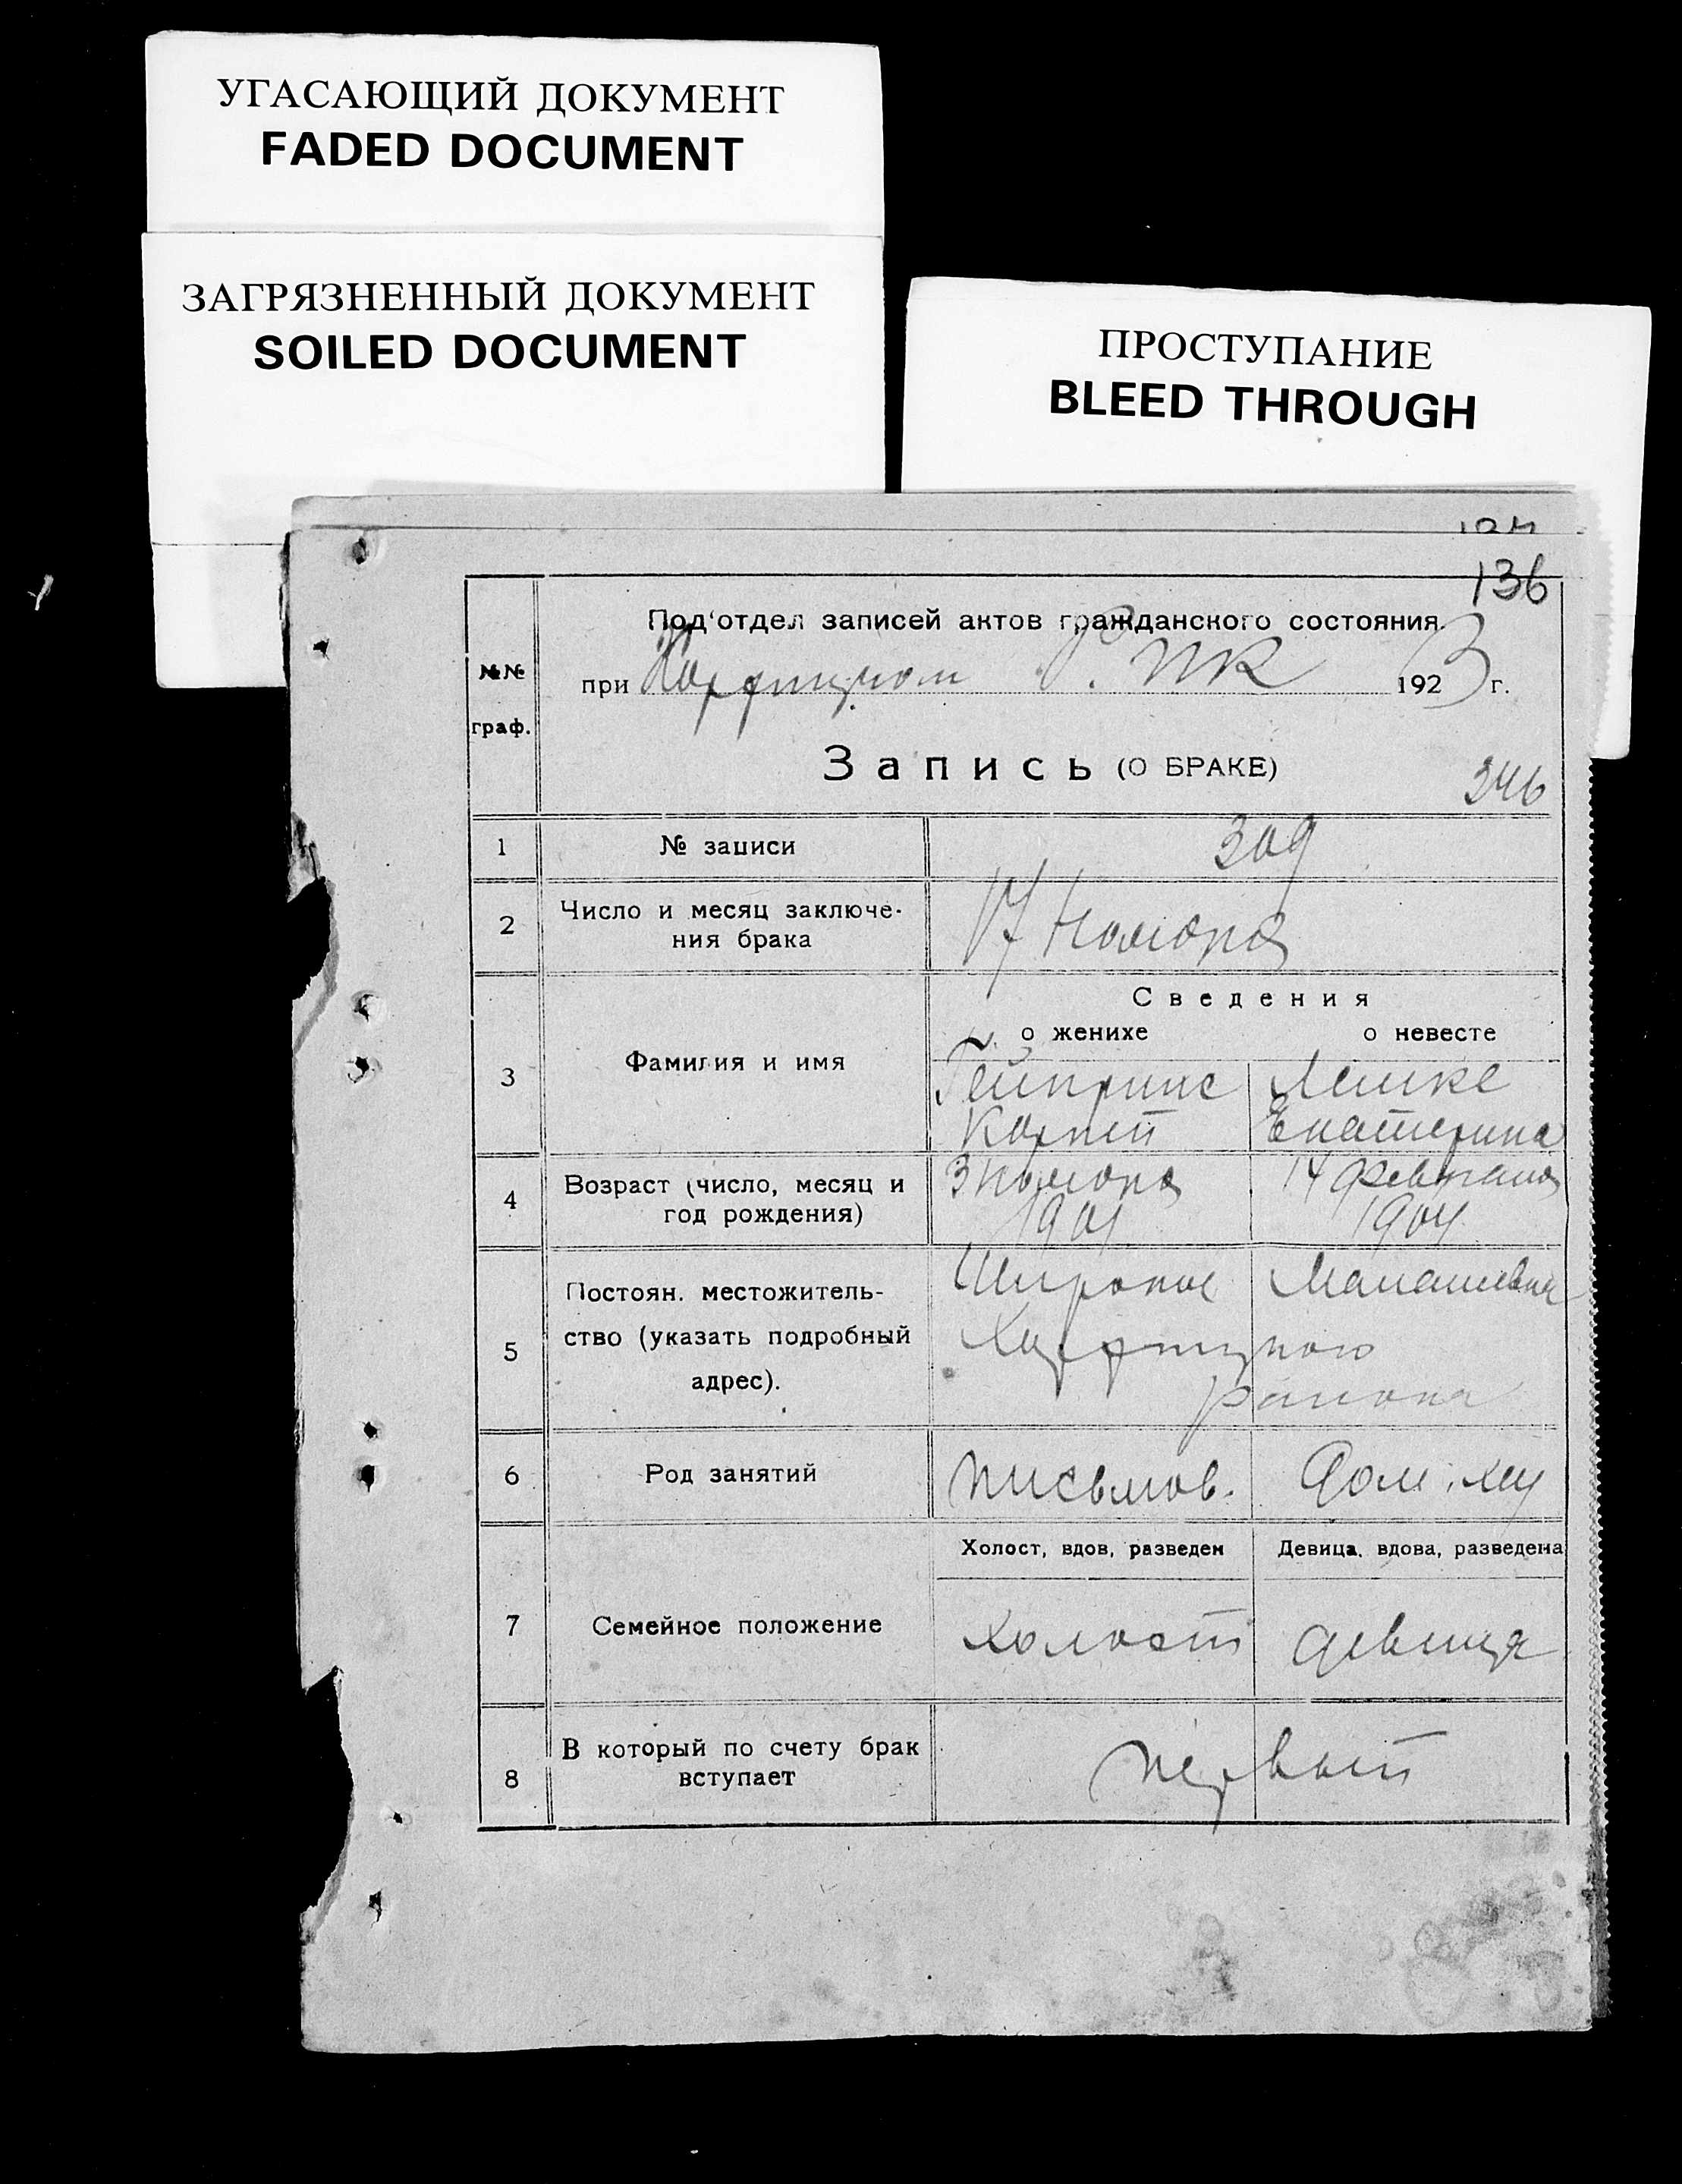 УГАСАЮЩИЙ ДОКУМЕНТ
FADED DOCUMENT
ЗАГРЯЗНЕННЫЙ ДОКУМЕНТ
SOILED DOCUMENT
ПРОСТУПАНИЕ
BLEED THROUGH
136
№№ граф.
Под'отдел записей актов гражданского состояния.
при Хортицком Р. ИК 1923 г.
Запись (О БРАКЕ)
346
1 № записи 309
2 Число и месяц заключе-
ния брака 17 Ноября
Сведения
о женихе о невесте
3 Фамилия и имя Гейнрихс Лемке
Корней Екатерина
4 Возраст (число, месяц и 3 ноября 14 февраля
год рождения) 1901 1904
5 Постоян. местожитель- Широкое
ство (указать подробный Хортицкого
адрес). района
6 Род занятий письмов. Дом. хоз
Холост, вдов, разведен Девица, вдова, разведена
7 Семейное положение холост девица
8 В который по счету брак
вступает первый